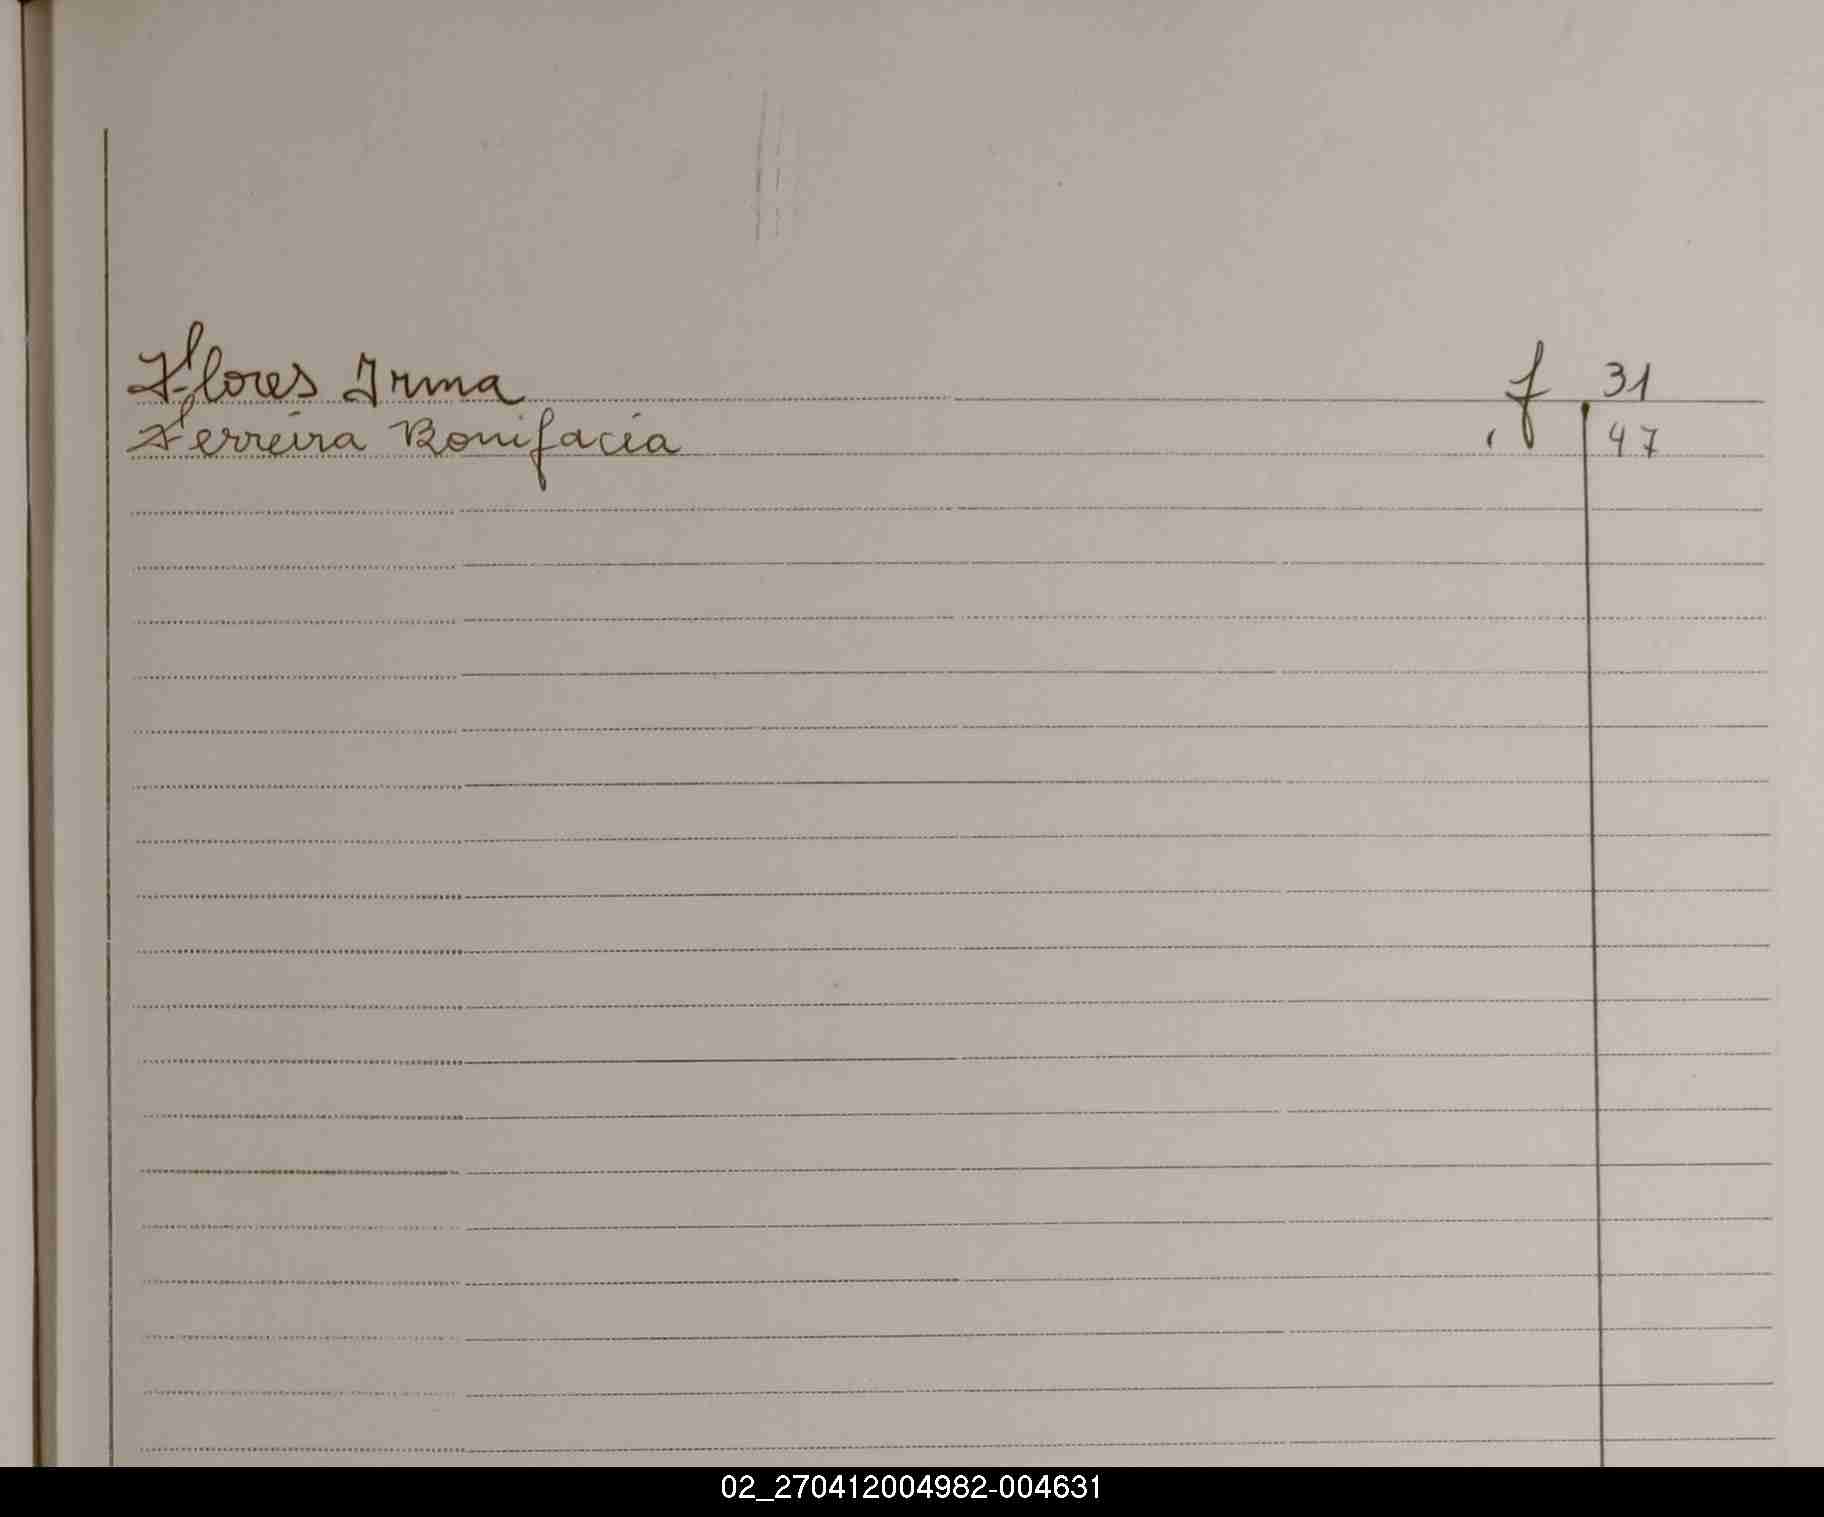 Flores Irma f 31
Ferreira Bonifacia , 47
02_270412004982-004631